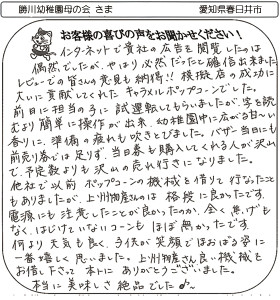 勝川幼稚園母の会 さま 愛知県春日井市
お客様の喜びの声をお聞かせください!
インターネットで貴社の広告を閲覧したのは
偶然でしたが、やはり必然だったと確信出来ました。
レビューでの皆さんの意見も納得!! 模擬店の成功に
大いに貢献してくれた キャラメルポップコーンでした。
前日に担当の子に試運転してもらいましたが、字を読
むより簡単に操作が出来、幼稚園中に広がる甘~い
香りに、準備の疲れも吹きとびました。バザー当日にも
前売り券では足りず、当日券も購入してくれる人が沢山
で、予定数よりも沢山の売れ行きになりました。
他社で以前 ポップコーンの機械を借りて行なったこと
もありましたが、上州物産さんは 格段に良かったです。
電源にも注意したことが良かったのか、全く焦げも
なく、はじけていないコーンも ほぼ無かったです。
何より 天気も良く、子供が笑顔でほおばる姿に
一番嬉しく思いました。上州物産さん良い機械を
お借し下さって 本トに ありがとうございました。
本当に 美味しさ 絶品でした♪